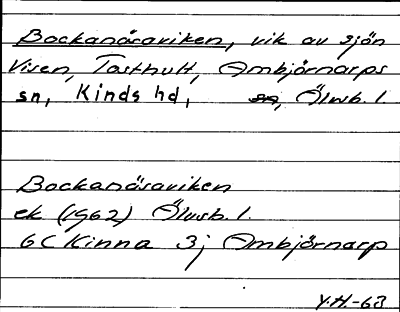 Bockanäsaviken, vik av sjön
Viven, Tosthult, Ambjörnarps
sn, Kinds hd, sn, Älvsb. l.
Bockanäsaviken
ek (1962) Älvsb. l.
6C Kinna 3j Ambjörnarp
Y.H.-63